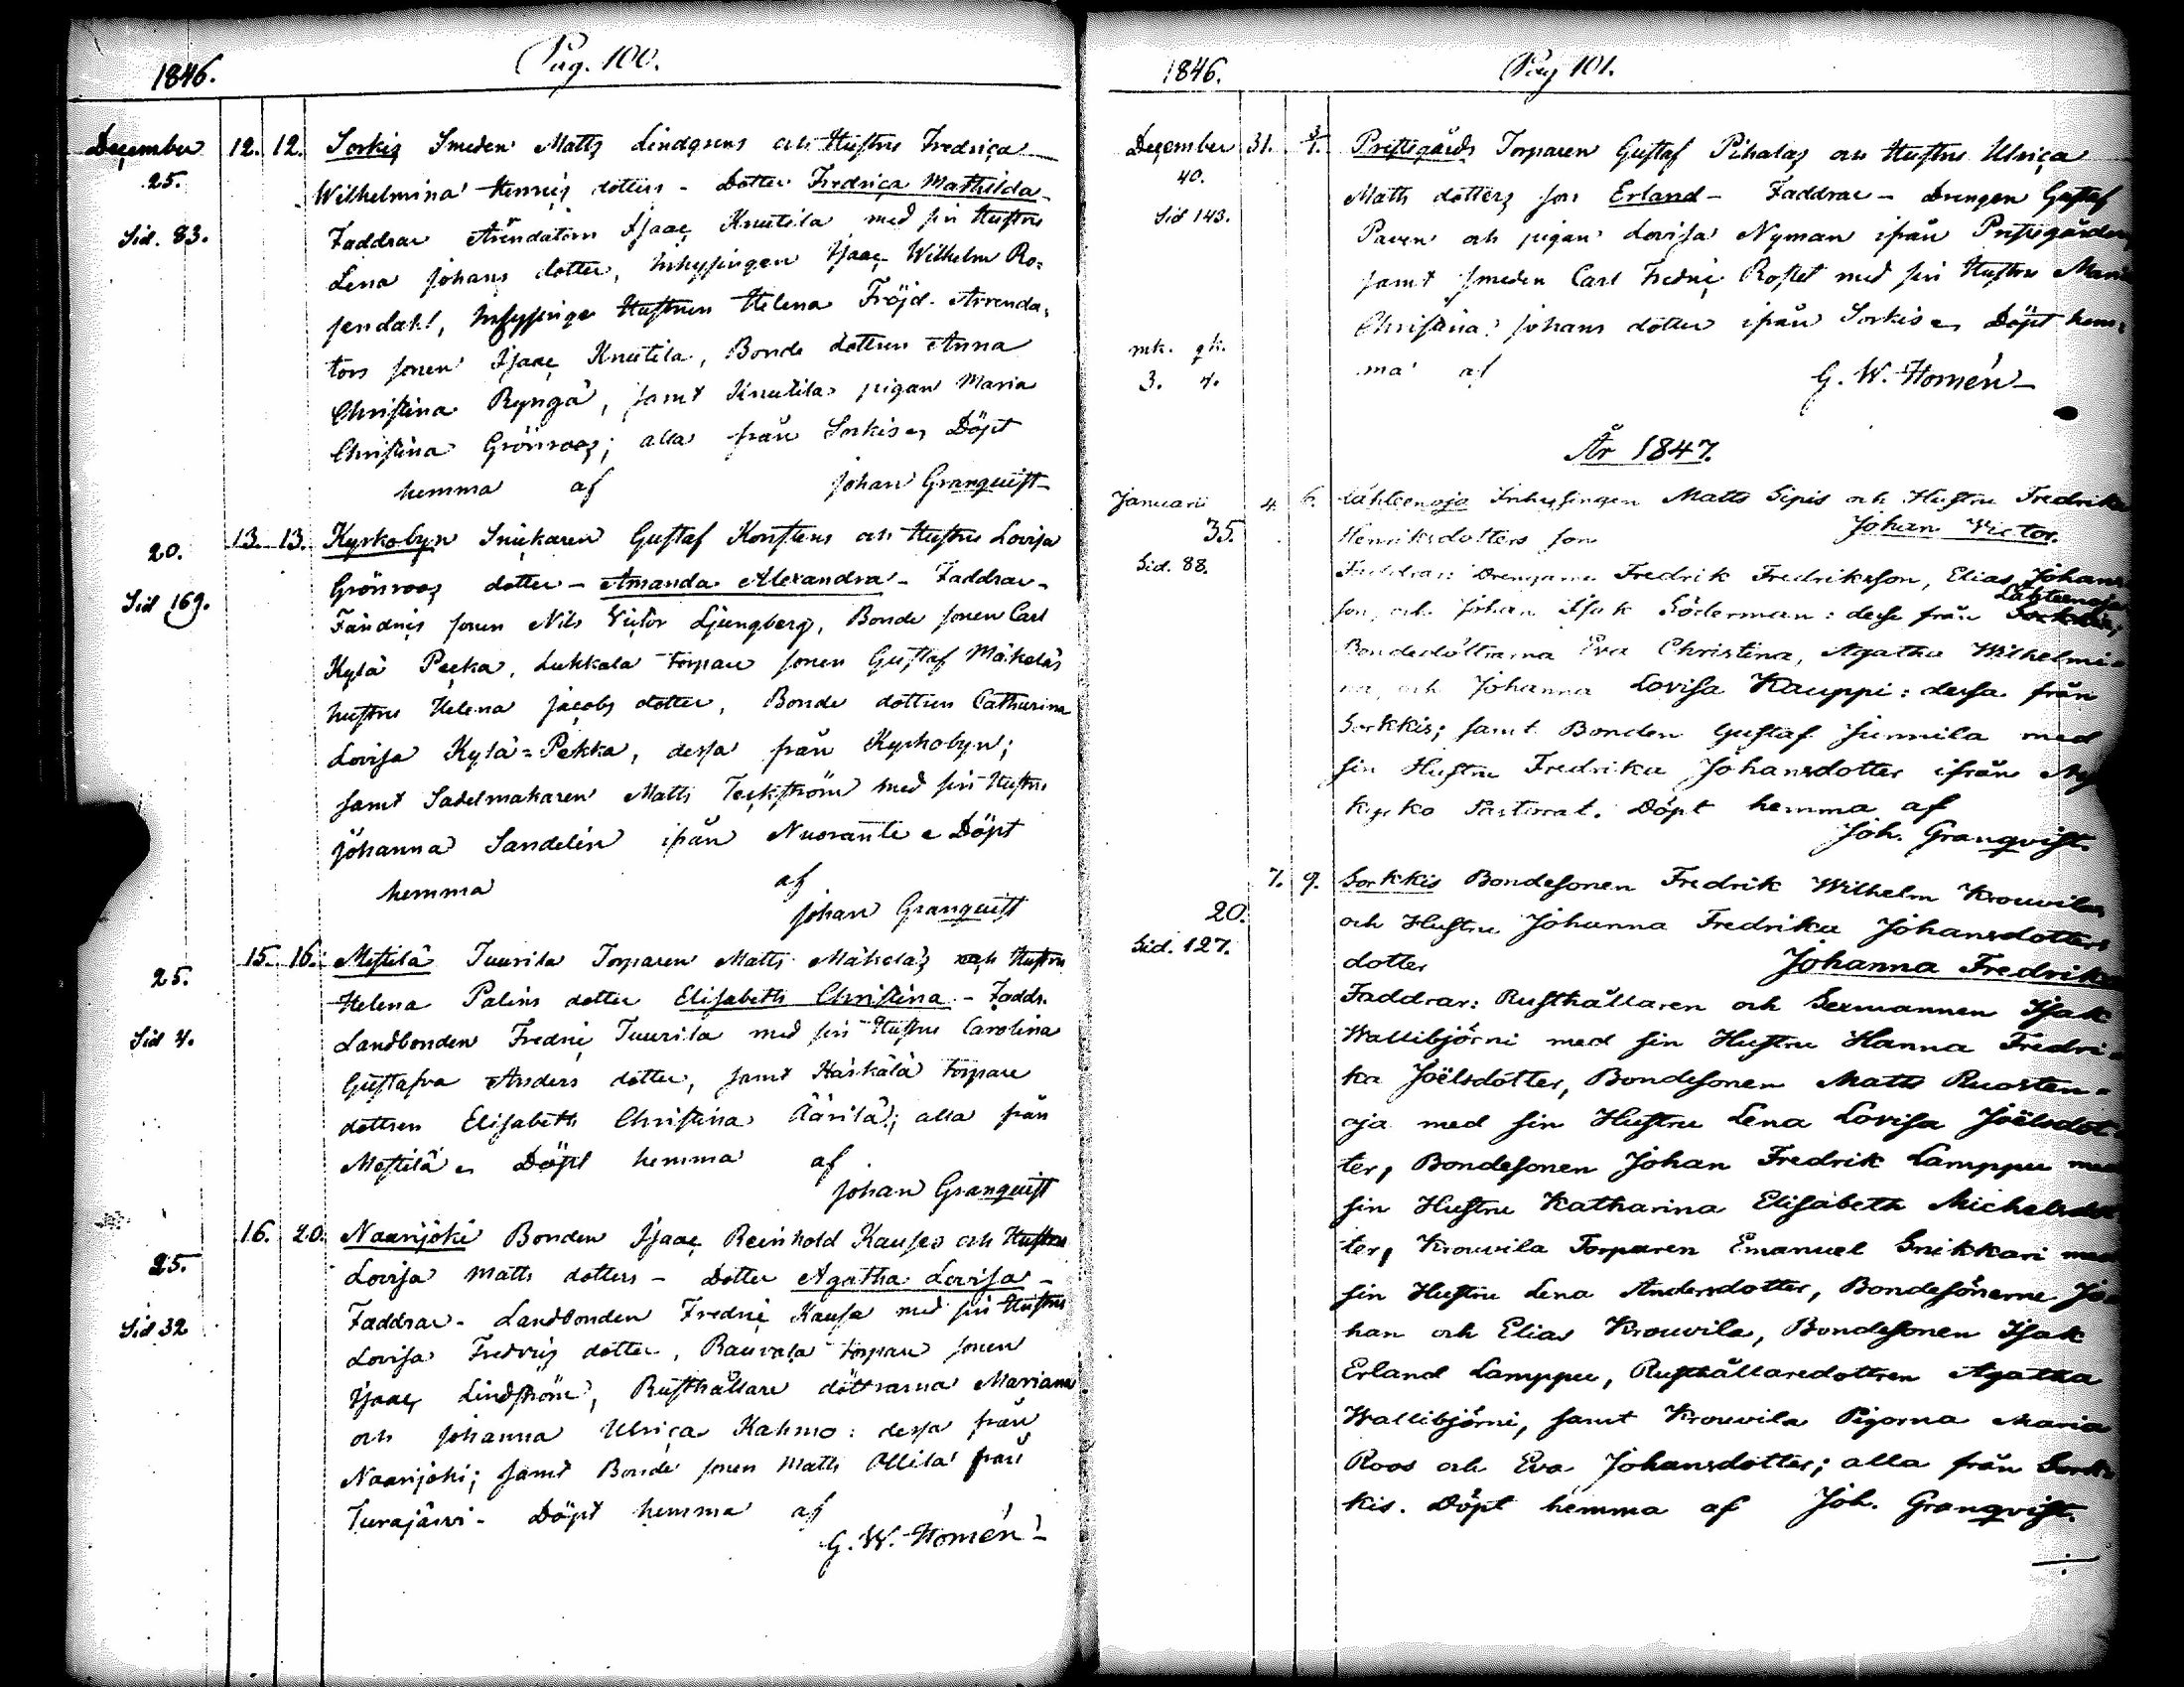 1846.
Pag. 100.
December 12. 12. Sorkis Smeden Matts Lindgrens och Hustru Fredrica
25.
Wilhelmina Henrics dotters - Dotter Fredrica Mathilda -
Sid. 83.
Faddrar Arendatorn Isaac Knutila med sin Hustru
Lena Johans dotter, Inhysingen Isaac Wilhelm Ro=
sendahl, Inhysinge Hustrun Helena Fröjd. Arrenda=
tors sonen Isaac Knutila, Bonde dottren Anna
Christina Ryngä, samt Knutilas pigan Maria
Christina Grönroos; alla från Sorkis Döpt
hemma af Johan Granquist
13. 13. Kyrkobyn Snickaren Gustaf Konstens och Hustru Lovisa
20.
Grönroos dotter - Amanda Alexandra - Faddrar -
Sid 169.
Fändrics sonen Nils Victor Ljungberg, Bonde sonen Carl
Kylä Pecka, Luhkala torpare sonen Gustaf Mäkeläs
hustru Helena Jacobs dotter, Bonde dottren Catharina
Lovisa Kylä=Pekka, dessa från Kyrkobyn;
samt Sadelmakaren Matts Teckström med sin Hustru
Johanna Sandelin ifrån Nuorante Döpt
hemma af
Johan Granquist
15. 16. Mestilä Tuurila Torparen Matts Mäkeläs och Hustru
25.
Helena Palins dotter Elisabeth Christina - Faddr.
Sid 4.
Landbonden Fredric Tuurila med sin Hustru Carolina
Gustafva Anders dotter, samt Härkälä torpare
dottren Elisabeth Christina Äärilä; alla från
Mestilä Döpt hemma af
Johan Granquist
16. 20. Naarijoki Bonden Isaac Reinhold Kauses och Hustru
25.
Lovisa Matts dotters - Dotter Agatha Lovisa -
Sid 32
Faddrar - Landbonden Fredric Kausa med sin Hustru
Lovisa Fredrics dotter, Rauvala torpare sonen
Isaac Lindström, Rusthållare döttrarna Mariana
och Johanna Ulrica Kahmo: dessa från
Naarijoki; samt Bonde sonen Matts Ollila från
Turajärvi - Döpt hemma af
G. W. Homén -
1846.
Pag 101.
December 31. 3/1. Prestgårds Torparen Gustaf Pihalas och Hustru Ulrica
40.
Matts dotters son Erland - Faddrar - Drengen Gustaf
Sid 143.
Paven och pigan Lovisa Nyman ifrån Prestgården
samt smeden Carl Fredric Rostet med sin Hustru Maria
Christina Johans dotter ifrån Sorkis Döpt hem=
mk. gk.
ma af G. W. Homén -
3. 4.
År 1847.
Januarii 4. 6. Lähteenoja Inhysingen Matts Sipis och Hustru Fredrika
35.
Henriksdotters son Johan Victor.
Sid. 88.
Faddrar: Drengarne Fredrik Fredriksson, Elias Johans
Lähteenoja
son, och Johan Isak Söderman: desse från Sorkkis;
Bondedöttrarna Eva Christina, Agatha Wilhelmi=
na, och Johanna Lovisa Kauppi: dessa från
Sorkkis; samt Bonden Gustaf Junnila med
sin Hustru Fredrika Johansdotter ifrån Ny
kyrko Pastorat. Döpt hemma af
Joh. Granqvist.
7. 9. Sorkkis Bondesonen Fredrik Wilhelm Krouvilas
20.
och Hustru Johanna Fredrika Johansdotters
Sid. 127.
dotter Johanna Fredrika
Faddrar: Rusthållaren och Sexmannen Isak
Wallibjörni med sin Hustru Hanna Fredri=
ka Joëlsdotter, Bondesonen Matts Ruosten=
oja med sin Hustru Lena Lovisa Joëlsdot=
ter, Bondesonen Johan Fredrik Lamppu med
sin Hustru Katharina Elisabeth Michelsdot
ter, Krouvila Torparen Emanuel Snikkari med
sin Hustru Lena Andersdotter, Bondesönerne Jo=
han och Elias Krouvila, Bondesonen Isak
Erland Lamppu, Rusthållaredottren Agatha
Wallibjörni, samt Krouvila Pigorna Maria
Roos och Eva Johansdotter; alla från Sork=
kis. Döpt hemma af Joh. Granqvist.